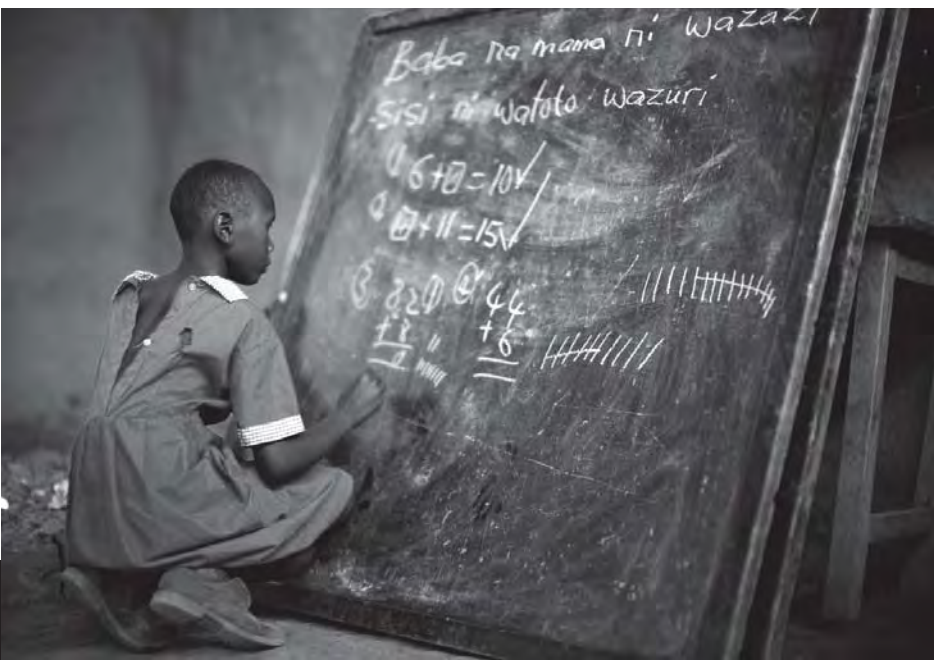 Baba na mama ni wazazi
sisi ni watoto wazuri
6+ =10✓
+11=15✓
44
+6